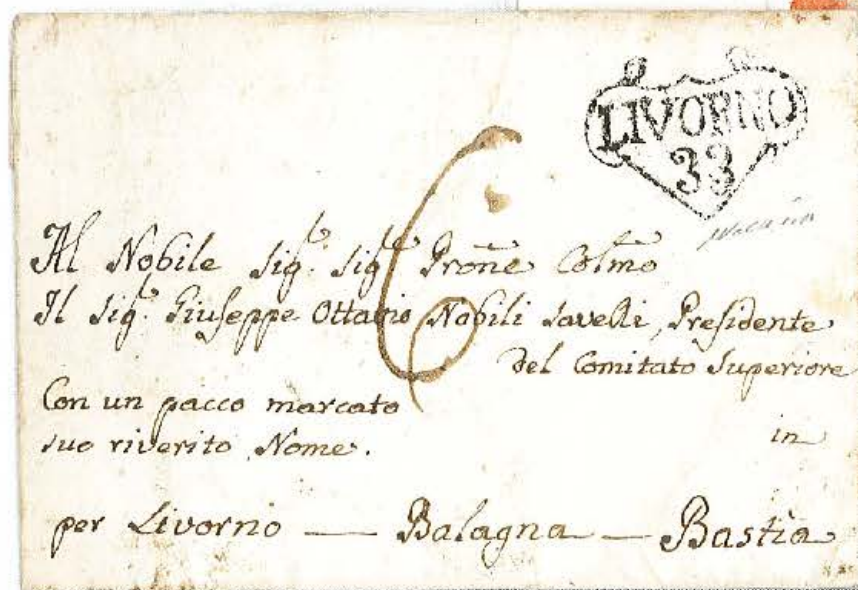 LIVORNO
33
6
Al Nobile Sig.r Sig.r Prōne Colmo
Il Sig.r Giuseppe Ottavio Nobili Savelli, Presidente
Del Comitato Superiore
Con un pacco marcato
suo riverito Nome.
in
per Livorno — Balagna — Bastia